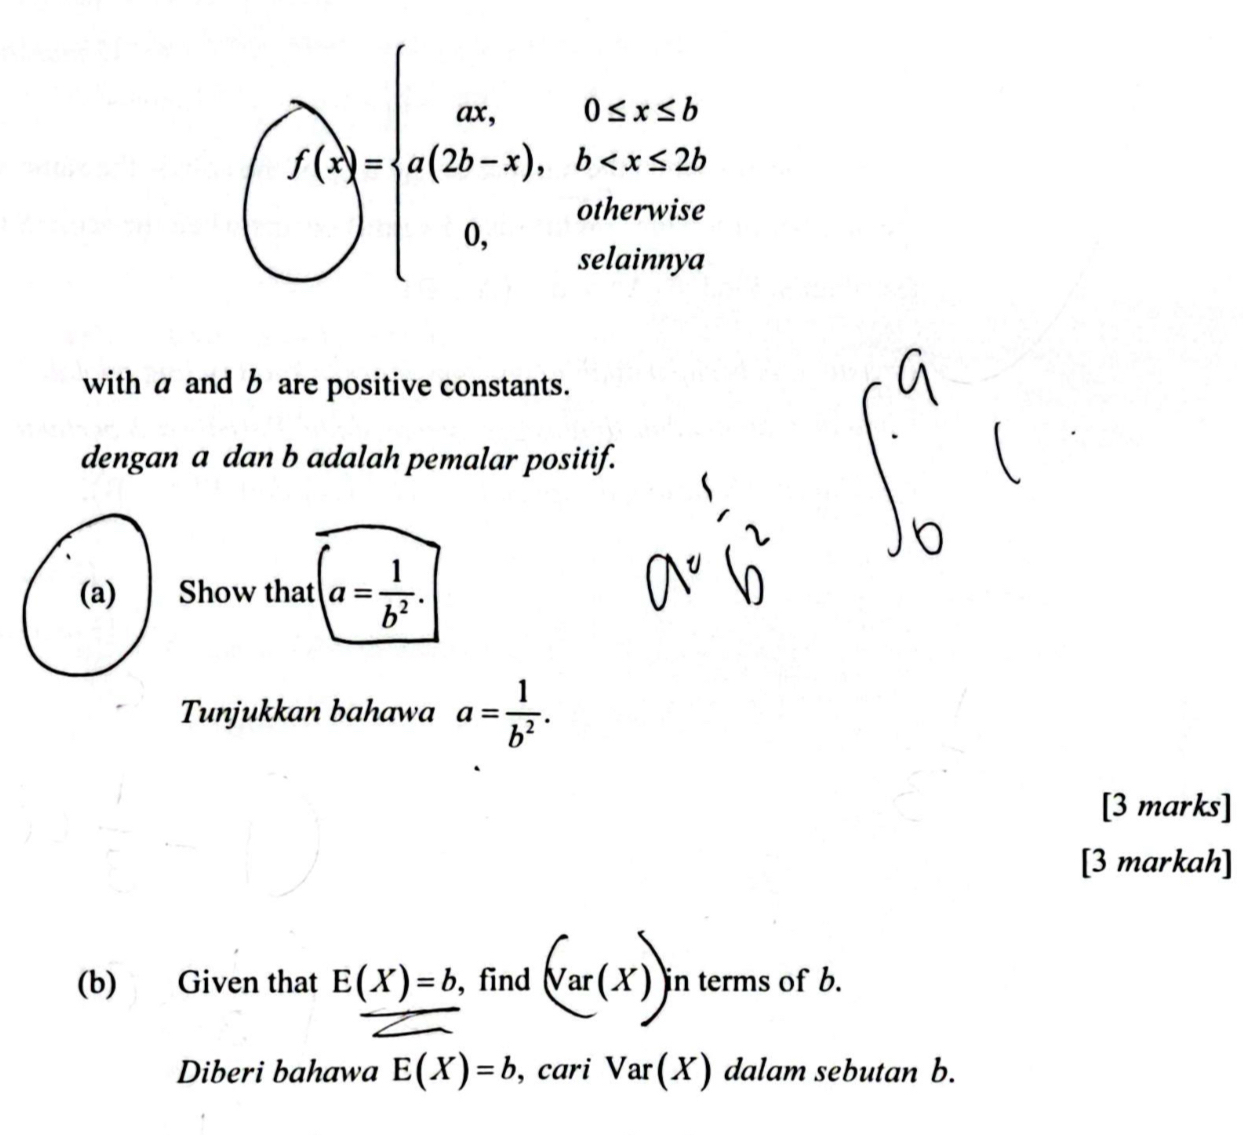 ax, 0 ≤ x ≤ b
f(x) = { a(2b − x), b < x ≤ 2b
otherwise
0,
selainnya
with a and b are positive constants.
dengan a dan b adalah pemalar positif.
∫ a b
a = 1/b²
(a) Show that a = 1/b².
Tunjukkan bahawa a = 1/b².
[3 marks]
[3 markah]
(b) Given that E(X) = b, find Var(X) in terms of b.
Diberi bahawa E(X) = b, cari Var(X) dalam sebutan b.